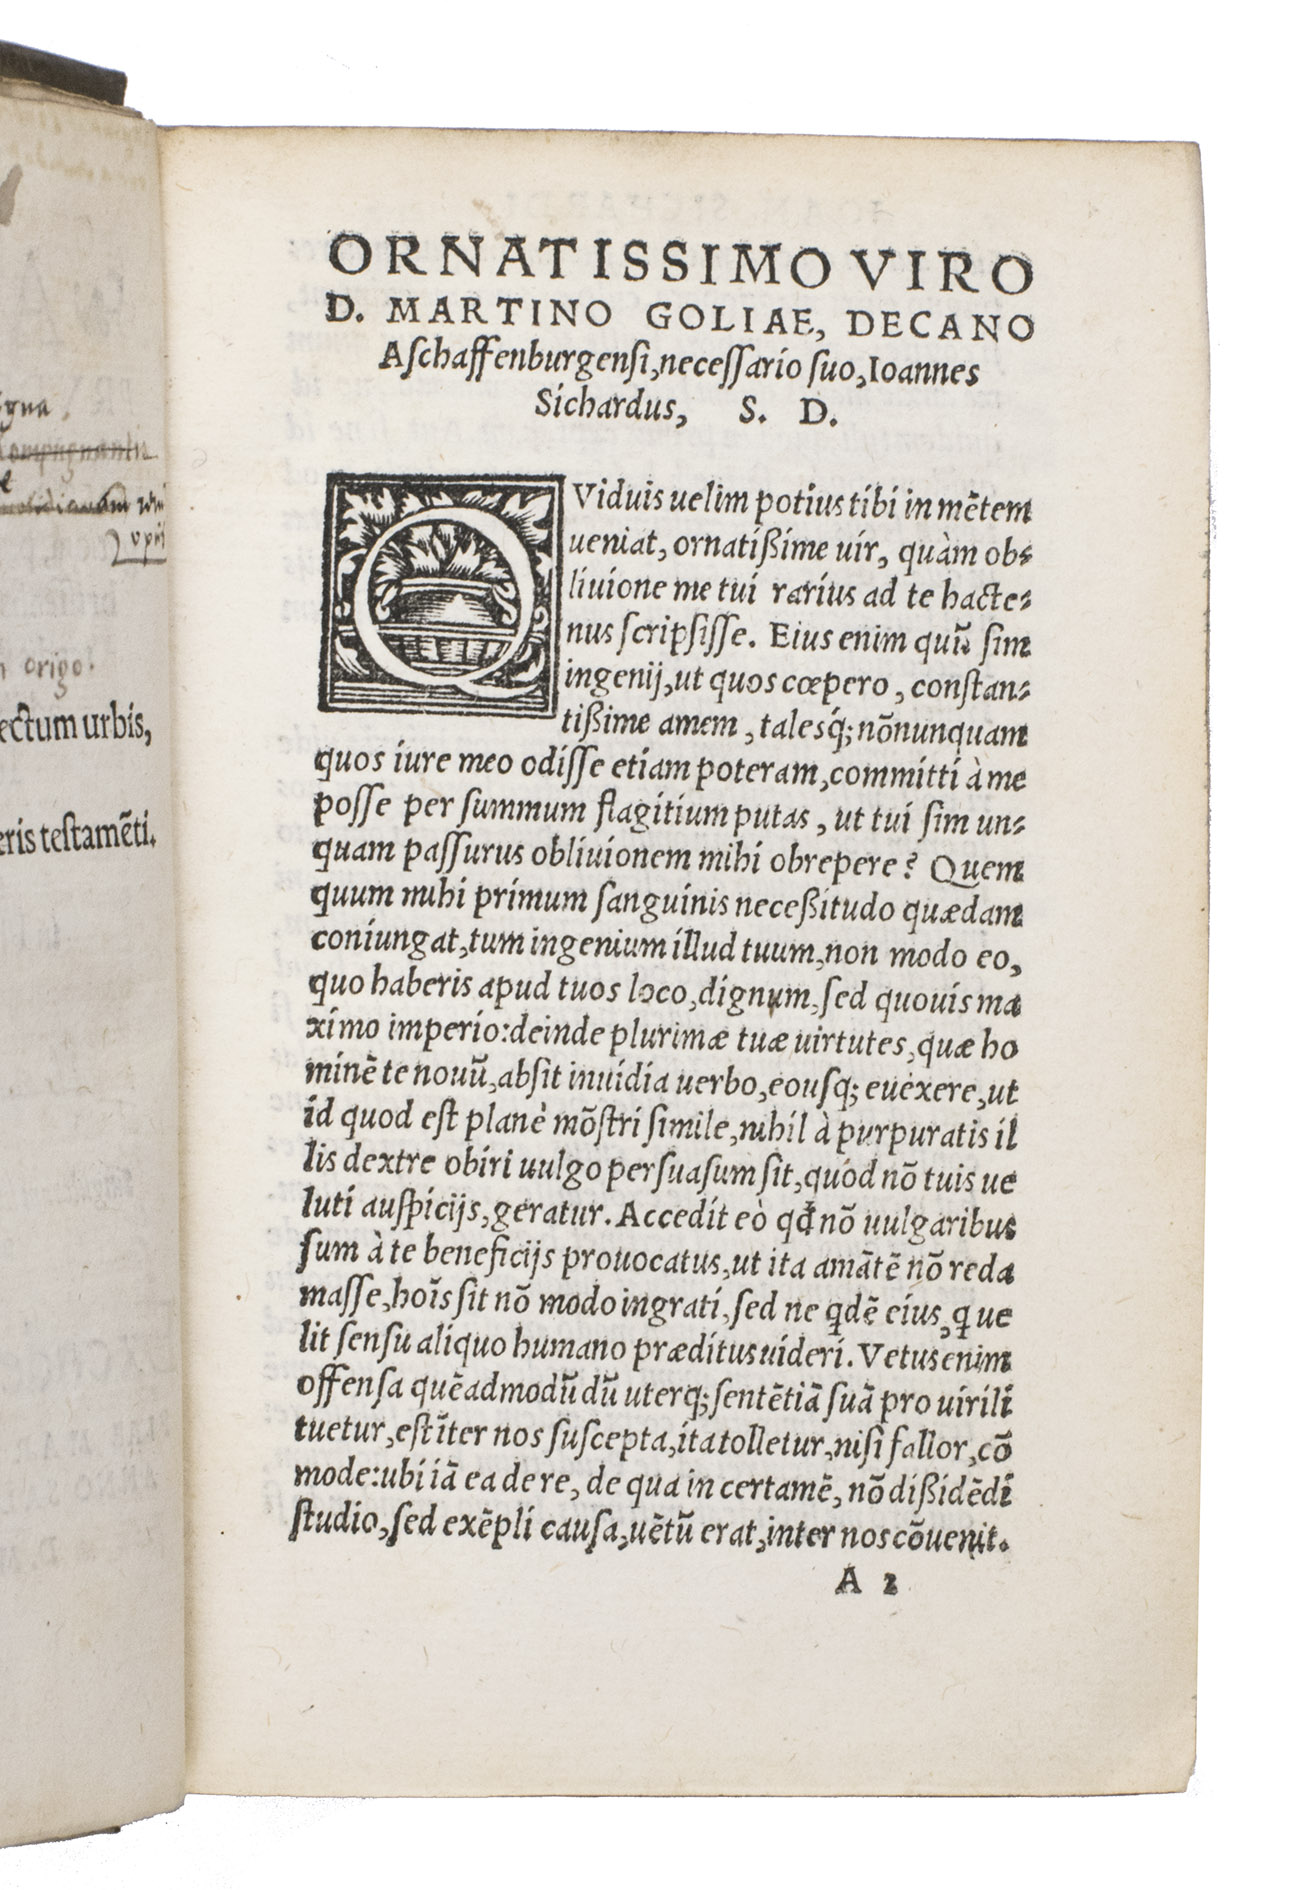 igna,
origo.
ectum urbis,
eris testamẽti.
ORNATISSIMO VIRO
D. MARTINO GOLIAE, DECANO
Aſchaffenburgenſi, neceſſario ſuo, Ioannes
Sichardus, S. D.
QViduis uelim potius tibi in mẽtem
ueniat, ornatißime uir, quàm ob⸗
liuione me tui rarius ad te hacte⸗
nus ſcripſiſſe. Eius enim quũ ſim
ingenij, ut quos cœpero, conſtan⸗
tißime amem, talesq́; nõnunquam
quos iure meo odiſſe etiam poteram, committi à me
poſſe per ſummum flagitium putas, ut tui ſim un⸗
quam paſſurus obliuionem mihi obrepere? Quem
quum mihi primum ſanguinis neceßitudo quædam
coniungat, tum ingenium illud tuum, non modo eo,
quo haberis apud tuos loco, dignum, ſed quouis ma
ximo imperio: deinde plurimæ tuæ uirtutes, quæ ho
minẽ te nouũ, abſit inuidia uerbo, eouſq; euexere, ut
id quod eſt planè mõſtri ſimile, nihil à purpuratis il
lis dextre obiri uulgo perſuaſum ſit, quòd nõ tuis ue
luti auſpicijs, geratur. Accedit eò qđ nõ uulgaribus
ſum à te beneficijs prouocatus, ut ita amãtẽ nõ reda
maſſe, hoĩs ſit nõ modo ingrati, ſed ne qdẽ eius, q ue
lit ſenſu aliquo humano præditus uideri. Vetus enim
offenſa quẽadmodũ dũ uterq; ſentẽtiã ſuã pro uirili
tuetur, eſt ĩter nos ſuſcepta, ita tolletur, niſi fallor, cõ
mode: ubi iã ea de re, de qua in certamẽ, nõ dißidẽdi
ſtudio, ſed exẽpli cauſa, uẽtũ erat, inter nos cõuenit.
A 2